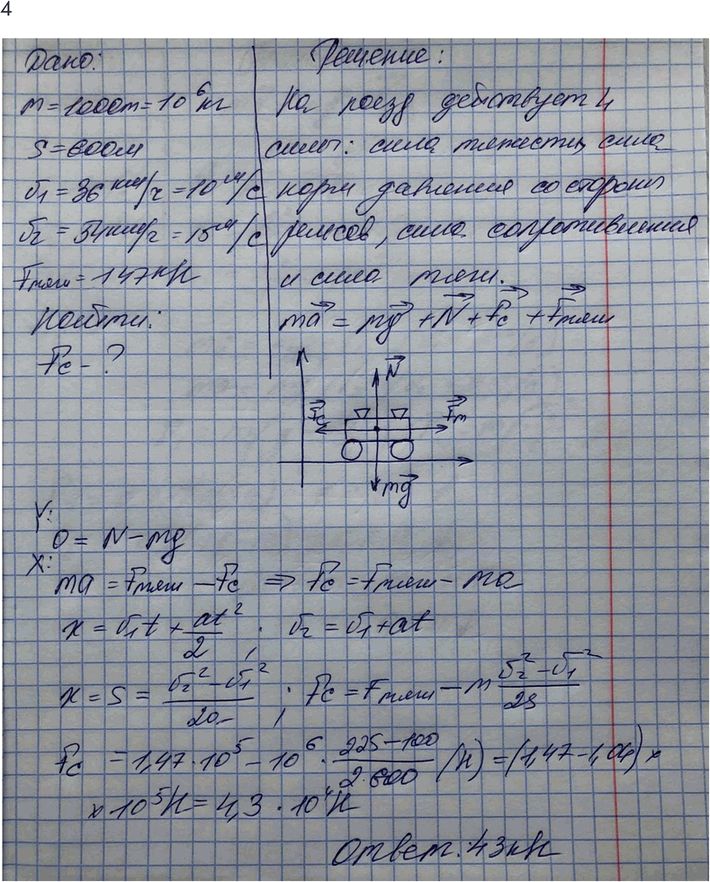 4
Дано:
m = 1000т = 10⁶ кг
S = 600м
υ₁ = 36 км/ч = 10 м/с
υ₂ = 54 км/ч = 15 м/с
Fтяги = 147 кН
Найти:
Fс - ?
Решение:
На поезд действует 4
силы: сила тяжести, сила
норм давления со стороны
рельсов, сила сопротивления
и сила тяги.
ma⃗ = mg⃗ + N⃗ + F⃗с + F⃗тяги
N⃗
F⃗с
F⃗т
mg⃗
Y:
0 = N - mg
X:
ma = Fтяги - Fс ⇒ Fс = Fтяги - ma
x = υ₁t + at²/2 ; υ₂ = υ₁ + at
x = S = (υ₂² - υ₁²)/2a ; Fс = Fтяги - m (υ₂² - υ₁²)/2S
Fс = 1,47 · 10⁵ - 10⁶ · (225 - 100)/(2·600) (Н) = (1,47 - 1,04) ×
× 10⁵ Н = 4,3 · 10⁴ Н
Ответ: 43 кН